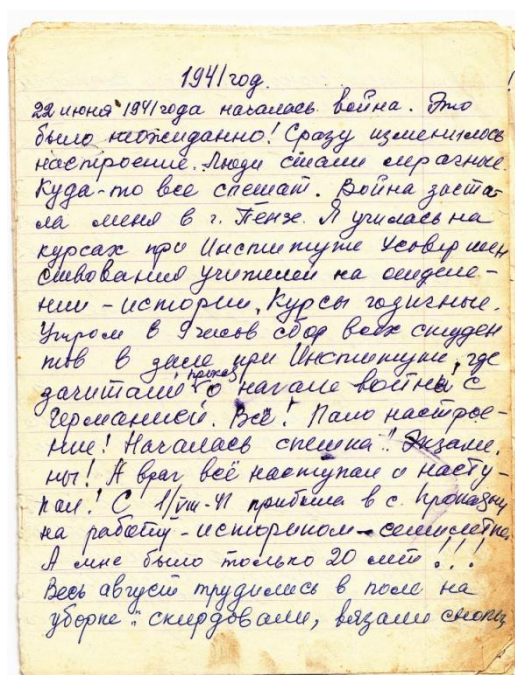 1941 год.
22 июня 1941 года началась война. Это
было неожиданно! Сразу изменилось
настроение. Люди стали мрачные.
Куда-то все спешат. Война заста-
ла меня в г. Пензе. Я училась на
курсах при Институте Усовершен
ствования учителей на отделе-
нии - истории. Курсы годичные.
Утром в 9 часов сбор всех студен
тов в зале при Институте, где
зачитали приказ о начале войны с
Германией. Всё! Пало настрое-
ние! Началась спешка! Экзаме
ны! А враг всё наступал и насту-
пал! С 1/VIII-41 прибыла в с.
на работу - историком - семилетка.
А мне было только 20 лет!!!
Весь август трудились в поле на
уборке: скирдовали, вязали снопы